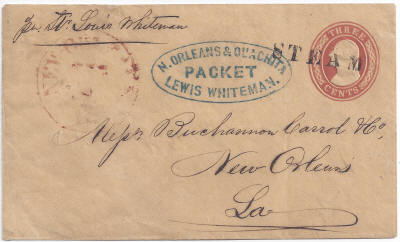 Per Str. Louis Whiteman
N. ORLEANS & OUACHITA
PACKET
LEWIS WHITEMAN.
STEAM
THREE
CENTS
Messrs Buchannon Carrol & Co,
New Orleans
La